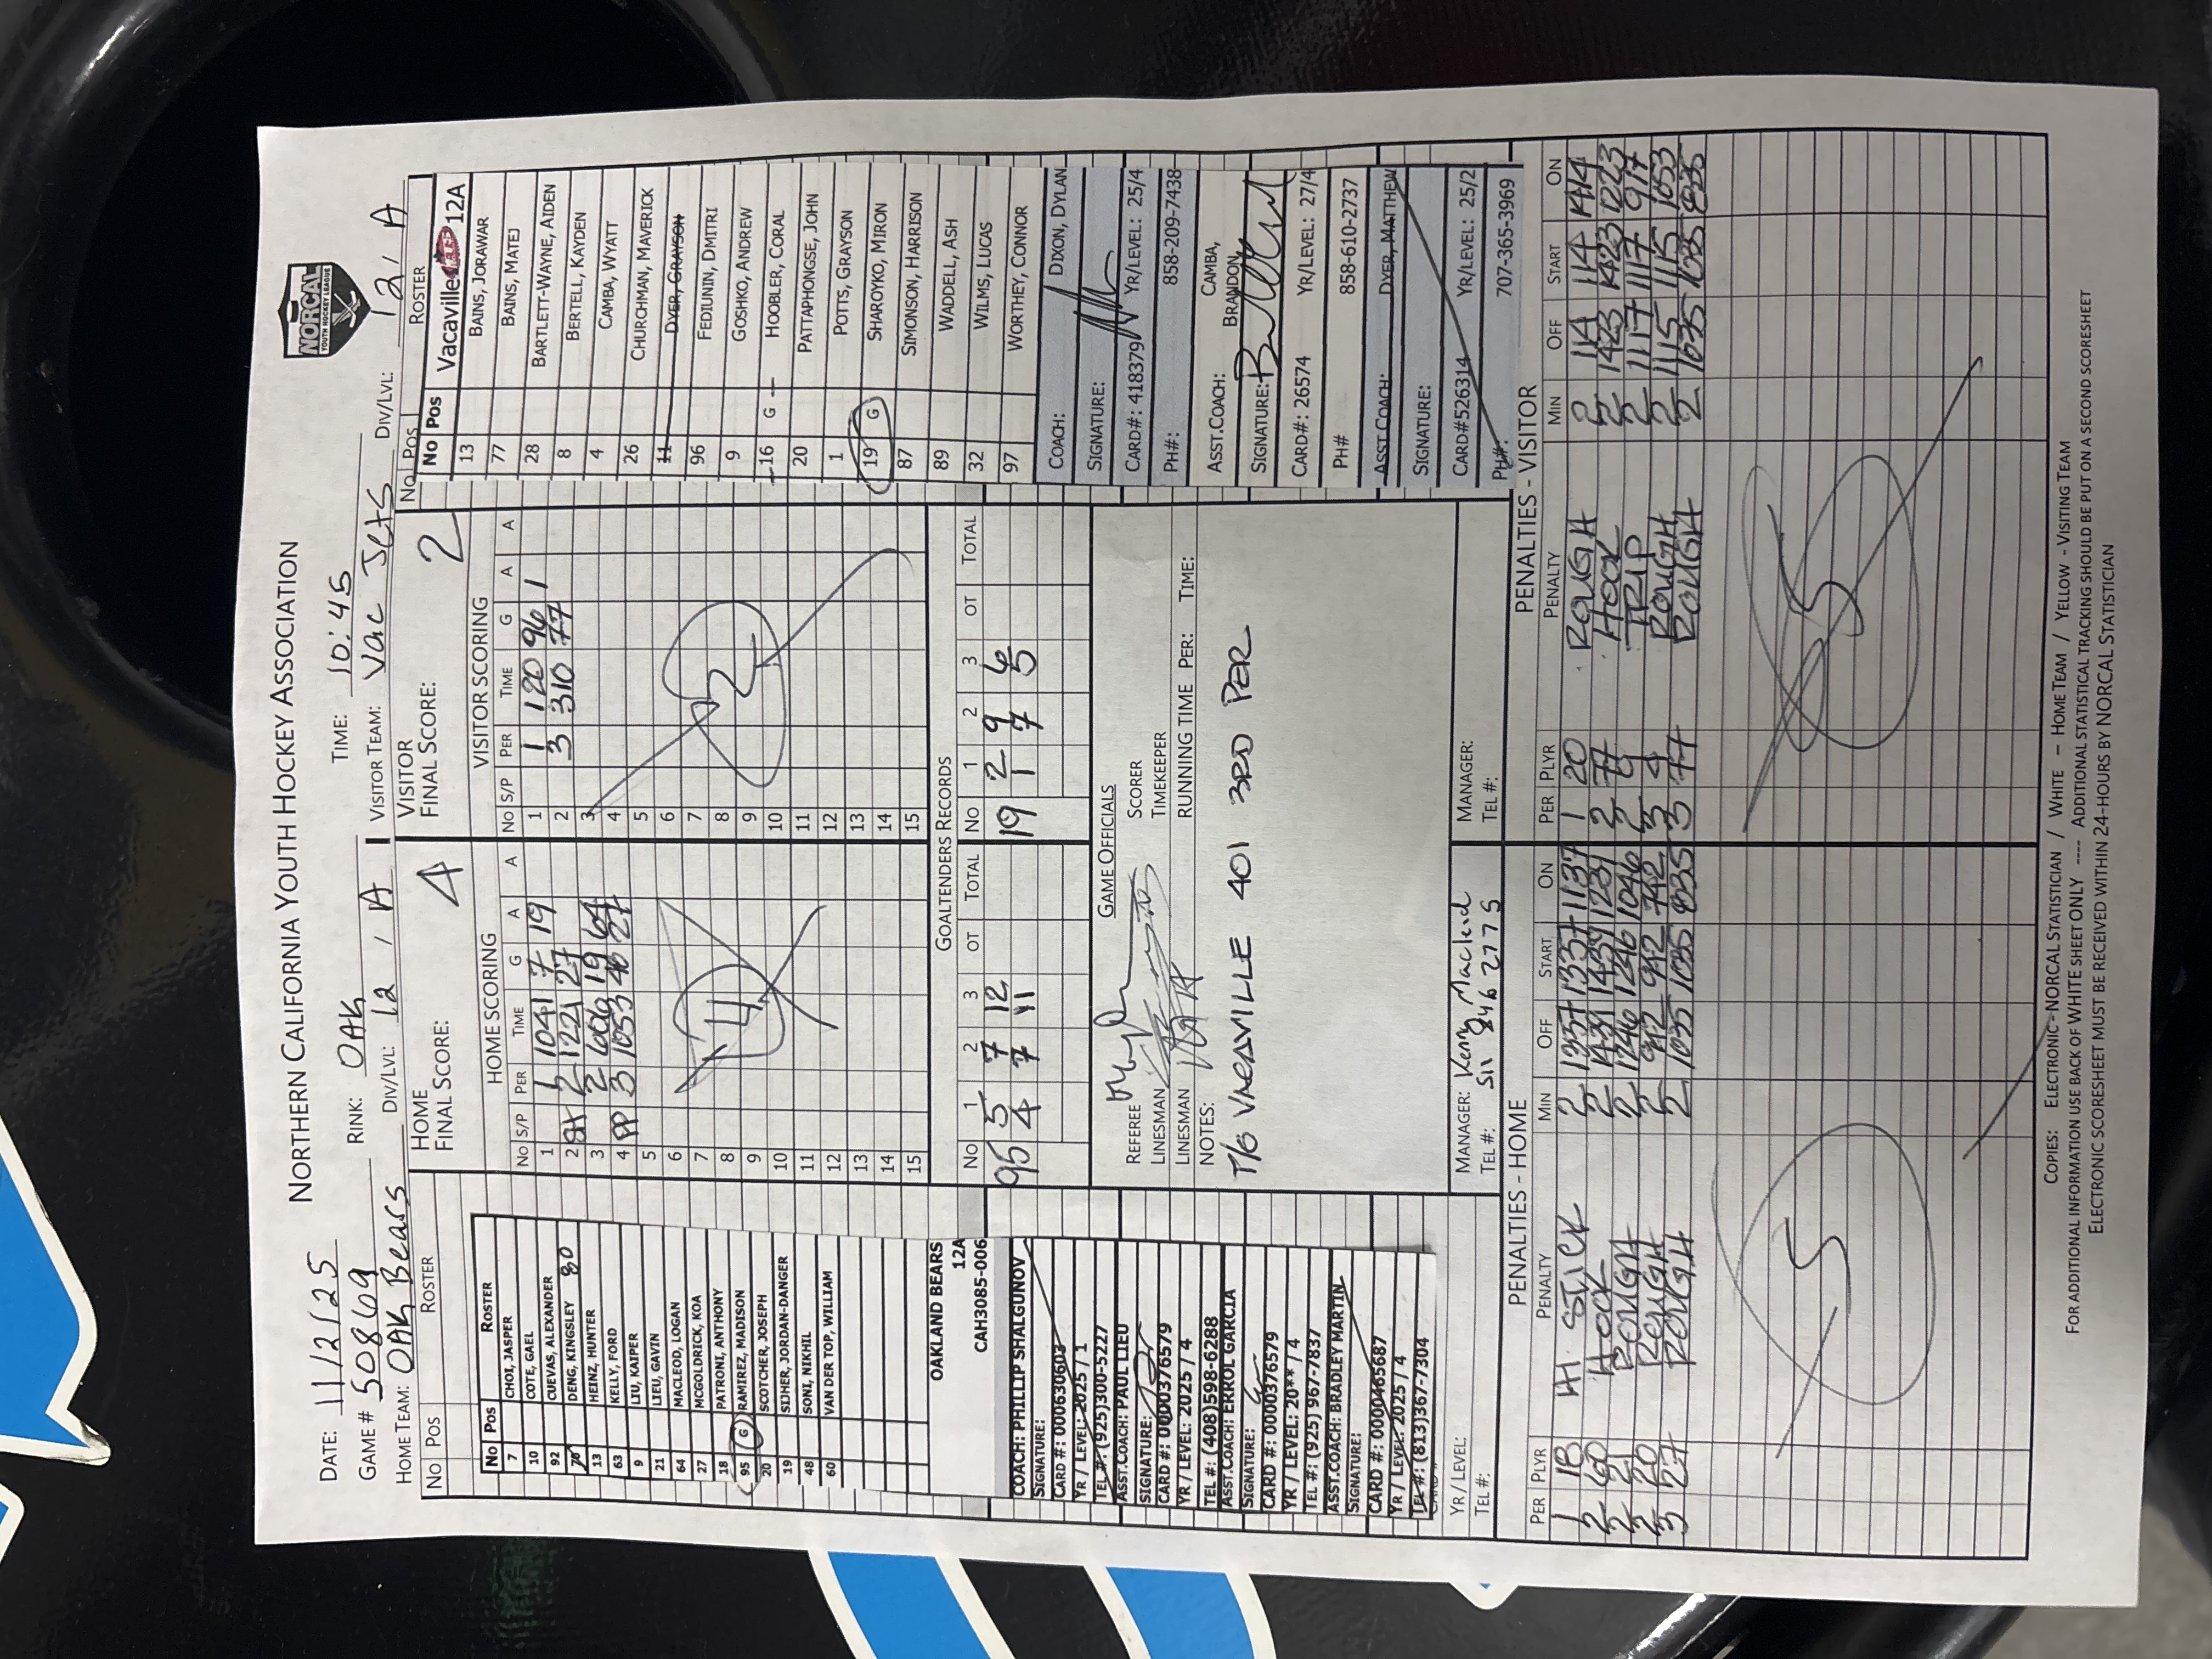 NORTHERN CALIFORNIA YOUTH HOCKEY ASSOCIATION
NORCAL
YOUTH HOCKEY LEAGUE
DATE: 11/2/25 RINK: OAK TIME: 10:45
GAME # 50869
HOME TEAM: OAK Bears DIV/LVL: 12 / A VISITOR TEAM: Vac Jets DIV/LVL: 12 / A
No POS ROSTER
No Pos Roster
7 CHOI, JASPER
10 COTE, GAEL
92 CUEVAS, ALEXANDER
DENG, KINGSLEY 80
13 HEINZ, HUNTER
63 KELLY, FORD
9 LIU, KAIPER
21 LIEU, GAVIN
64 MACLEOD, LOGAN
27 MCGOLDRICK, KOA
18 PATRONI, ANTHONY
95 G RAMIREZ, MADISON
20 SCOTCHER, JOSEPH
19 SISHER, JORDAN-DANGER
48 SONI, NIKHIL
60 VAN DER TOP, WILLIAM
OAKLAND BEARS
12A
CAH3085-006
COACH: PHILLIP SHALGUNOV
SIGNATURE:
CARD #: 000630603
YR / LEVEL: 2025 / 1
TEL #: (925)300-5227
ASST.COACH: PAUL LIEU
SIGNATURE:
CARD #: 0000376579
YR / LEVEL: 2025 / 4
TEL #: (408)598-6288
ASST.COACH: ERROL GARCIA
SIGNATURE:
CARD #: 0000376579
YR / LEVEL: 20** / 4
TEL #: (925) 967-7837
ASST.COACH: BRADLEY MARTIN
SIGNATURE:
CARD #: 0000465687
YR / LEVEL: 2025 / 4
TEL #: (813)367-7304
YR / LEVEL:
TEL #:
HOME
FINAL SCORE: 4
HOME SCORING
No S/P PER TIME G A A
1 1 1041 7 19
2 SH 2 1221 27
3 2 606 19 64
4 PP 3 1053 46 27
5
6
7
8
9
10
11
12
13
14
15
4
VISITOR
FINAL SCORE: 2
VISITOR SCORING
No S/P PER TIME G A A
1 1 120 96 1
2 3 310 77
3
4
5
6
7
8
9
10
11
12
13
14
15
2
GOALTENDERS RECORDS
No 1 2 3 OT TOTAL No 1 2 3 OT TOTAL
95 5 7 12 19 2 9 6
4 7 11 1 7 5
GAME OFFICIALS
REFEREE SCORER
LINESMAN TIMEKEEPER
LINESMAN RUNNING TIME PER: TIME:
NOTES:
T/O VACAVILLE 401 3RD PER
MANAGER: Kerry Macleod MANAGER:
TEL #: 511 846 2775 TEL #:
No POS ROSTER
No Pos Vacaville JETS 12A
13 BAINS, JORAWAR
77 BAINS, MATEJ
28 BARTLETT-WAYNE, AIDEN
8 BERTELL, KAYDEN
4 CAMBA, WYATT
26 CHURCHMAN, MAVERICK
11 DYER, GRAYSON
96 FEDIUNIN, DMITRI
9 GOSHKO, ANDREW
16 G HOOBLER, CORAL
20 PATTAPHONGSE, JOHN
1 POTTS, GRAYSON
19 G SHAROYKO, MIRON
87 SIMONSON, HARRISON
89 WADDELL, ASH
32 WILMS, LUCAS
97 WORTHEY, CONNOR
COACH: DIXON, DYLAN
SIGNATURE:
CARD#: 418379 YR/LEVEL: 25/4
PH#: 858-209-7438
ASST.COACH: CAMBA, BRANDON
SIGNATURE:
CARD#: 26574 YR/LEVEL: 27/4
PH# 858-610-2737
ASST.COACH: DYER, MATTHEW
SIGNATURE:
CARD#526314 YR/LEVEL: 25/2
PH#: 707-365-3969
PENALTIES - HOME
PER PLYR PENALTY MIN OFF START ON
1 18 HI STICK 2 1337 1337 1137
2 60 HOOK 2 1431 1431 1231
2 21 ROUGH 2 1246 1246 1046
2 20 ROUGH 2 942 942 742
3 27 ROUGH 2 1035 1035 835
5
PENALTIES - VISITOR
PER PLYR PENALTY MIN OFF START ON
1 20 ROUGH 2 114 114 1414
2 77 HOOK 2 1423 1423 1223
2 9 TRIP 2 1117 1117 917
3 4 ROUGH 2 1115 1115 1053
3 77 ROUGH 2 1035 1035 835
5
COPIES: ELECTRONIC - NORCAL STATISTICIAN / WHITE – HOME TEAM / YELLOW - VISITING TEAM
FOR ADDITIONAL INFORMATION USE BACK OF WHITE SHEET ONLY ---- ADDITIONAL STATISTICAL TRACKING SHOULD BE PUT ON A SECOND SCORESHEET
ELECTRONIC SCORESHEET MUST BE RECEIVED WITHIN 24-HOURS BY NORCAL STATISTICIAN